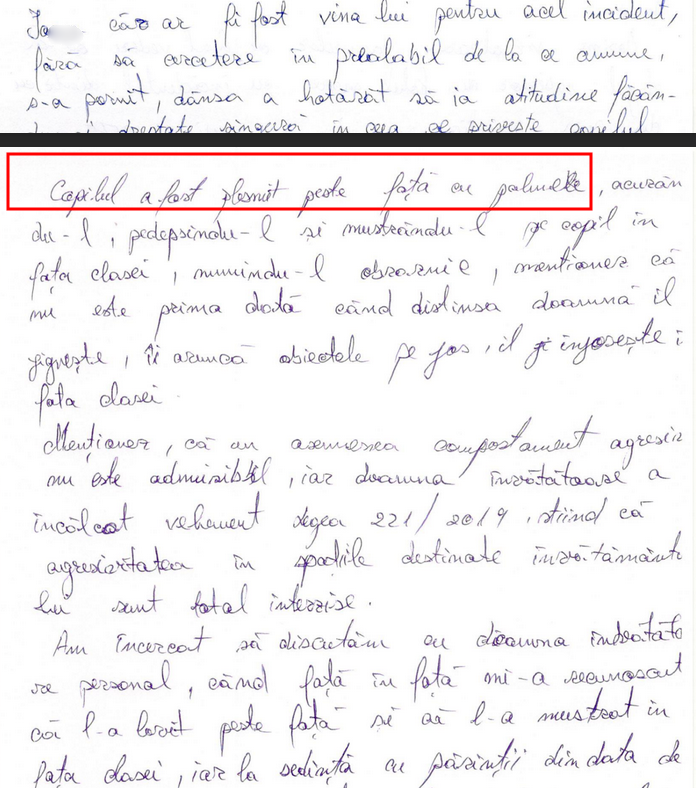 că ar fi fost vina lui pentru acel incident,
fără să cerceteze în prealabil de la ce anume,
s-a pornit, dânsa a hotărât să ia atitudine făcân-
dreptate singură în ceea ce privește copilul
Copilul a fost plesnit peste față cu palmele, acuzân
du-l, pedepsindu-l și mustrându-l pe copil în
fața clasei, numindu-l obraznic, menționez că
nu este prima dată când distinsa doamnă îl
jignește, îi aruncă obiectele pe jos, îl înjosește î
fața clasei.
Menționez, că un asemenea comportament agresiv
nu este admisibil, iar doamna învățătoare a
încălcat vehement legea 221/2019, știind că
agresivitatea în spațiile destinate învățământu
lui sunt total interzise.
Am încercat să discutăm cu doamna învățăto
re personal, când față în față mi-a recunoscut
că l-a lovit peste față și că l-a mustrat în
fața clasei, iar la ședință cu părinții din data de